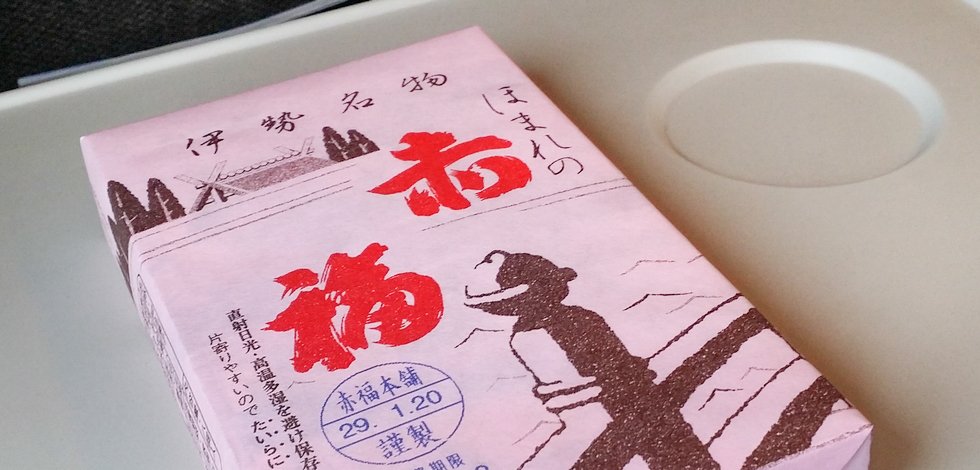 伊勢名物
ほまれの
赤福
直射日光・高温多湿を避け保存
片寄りやすいのでたいらに
赤福本舗
29.1.20
謹製
期限